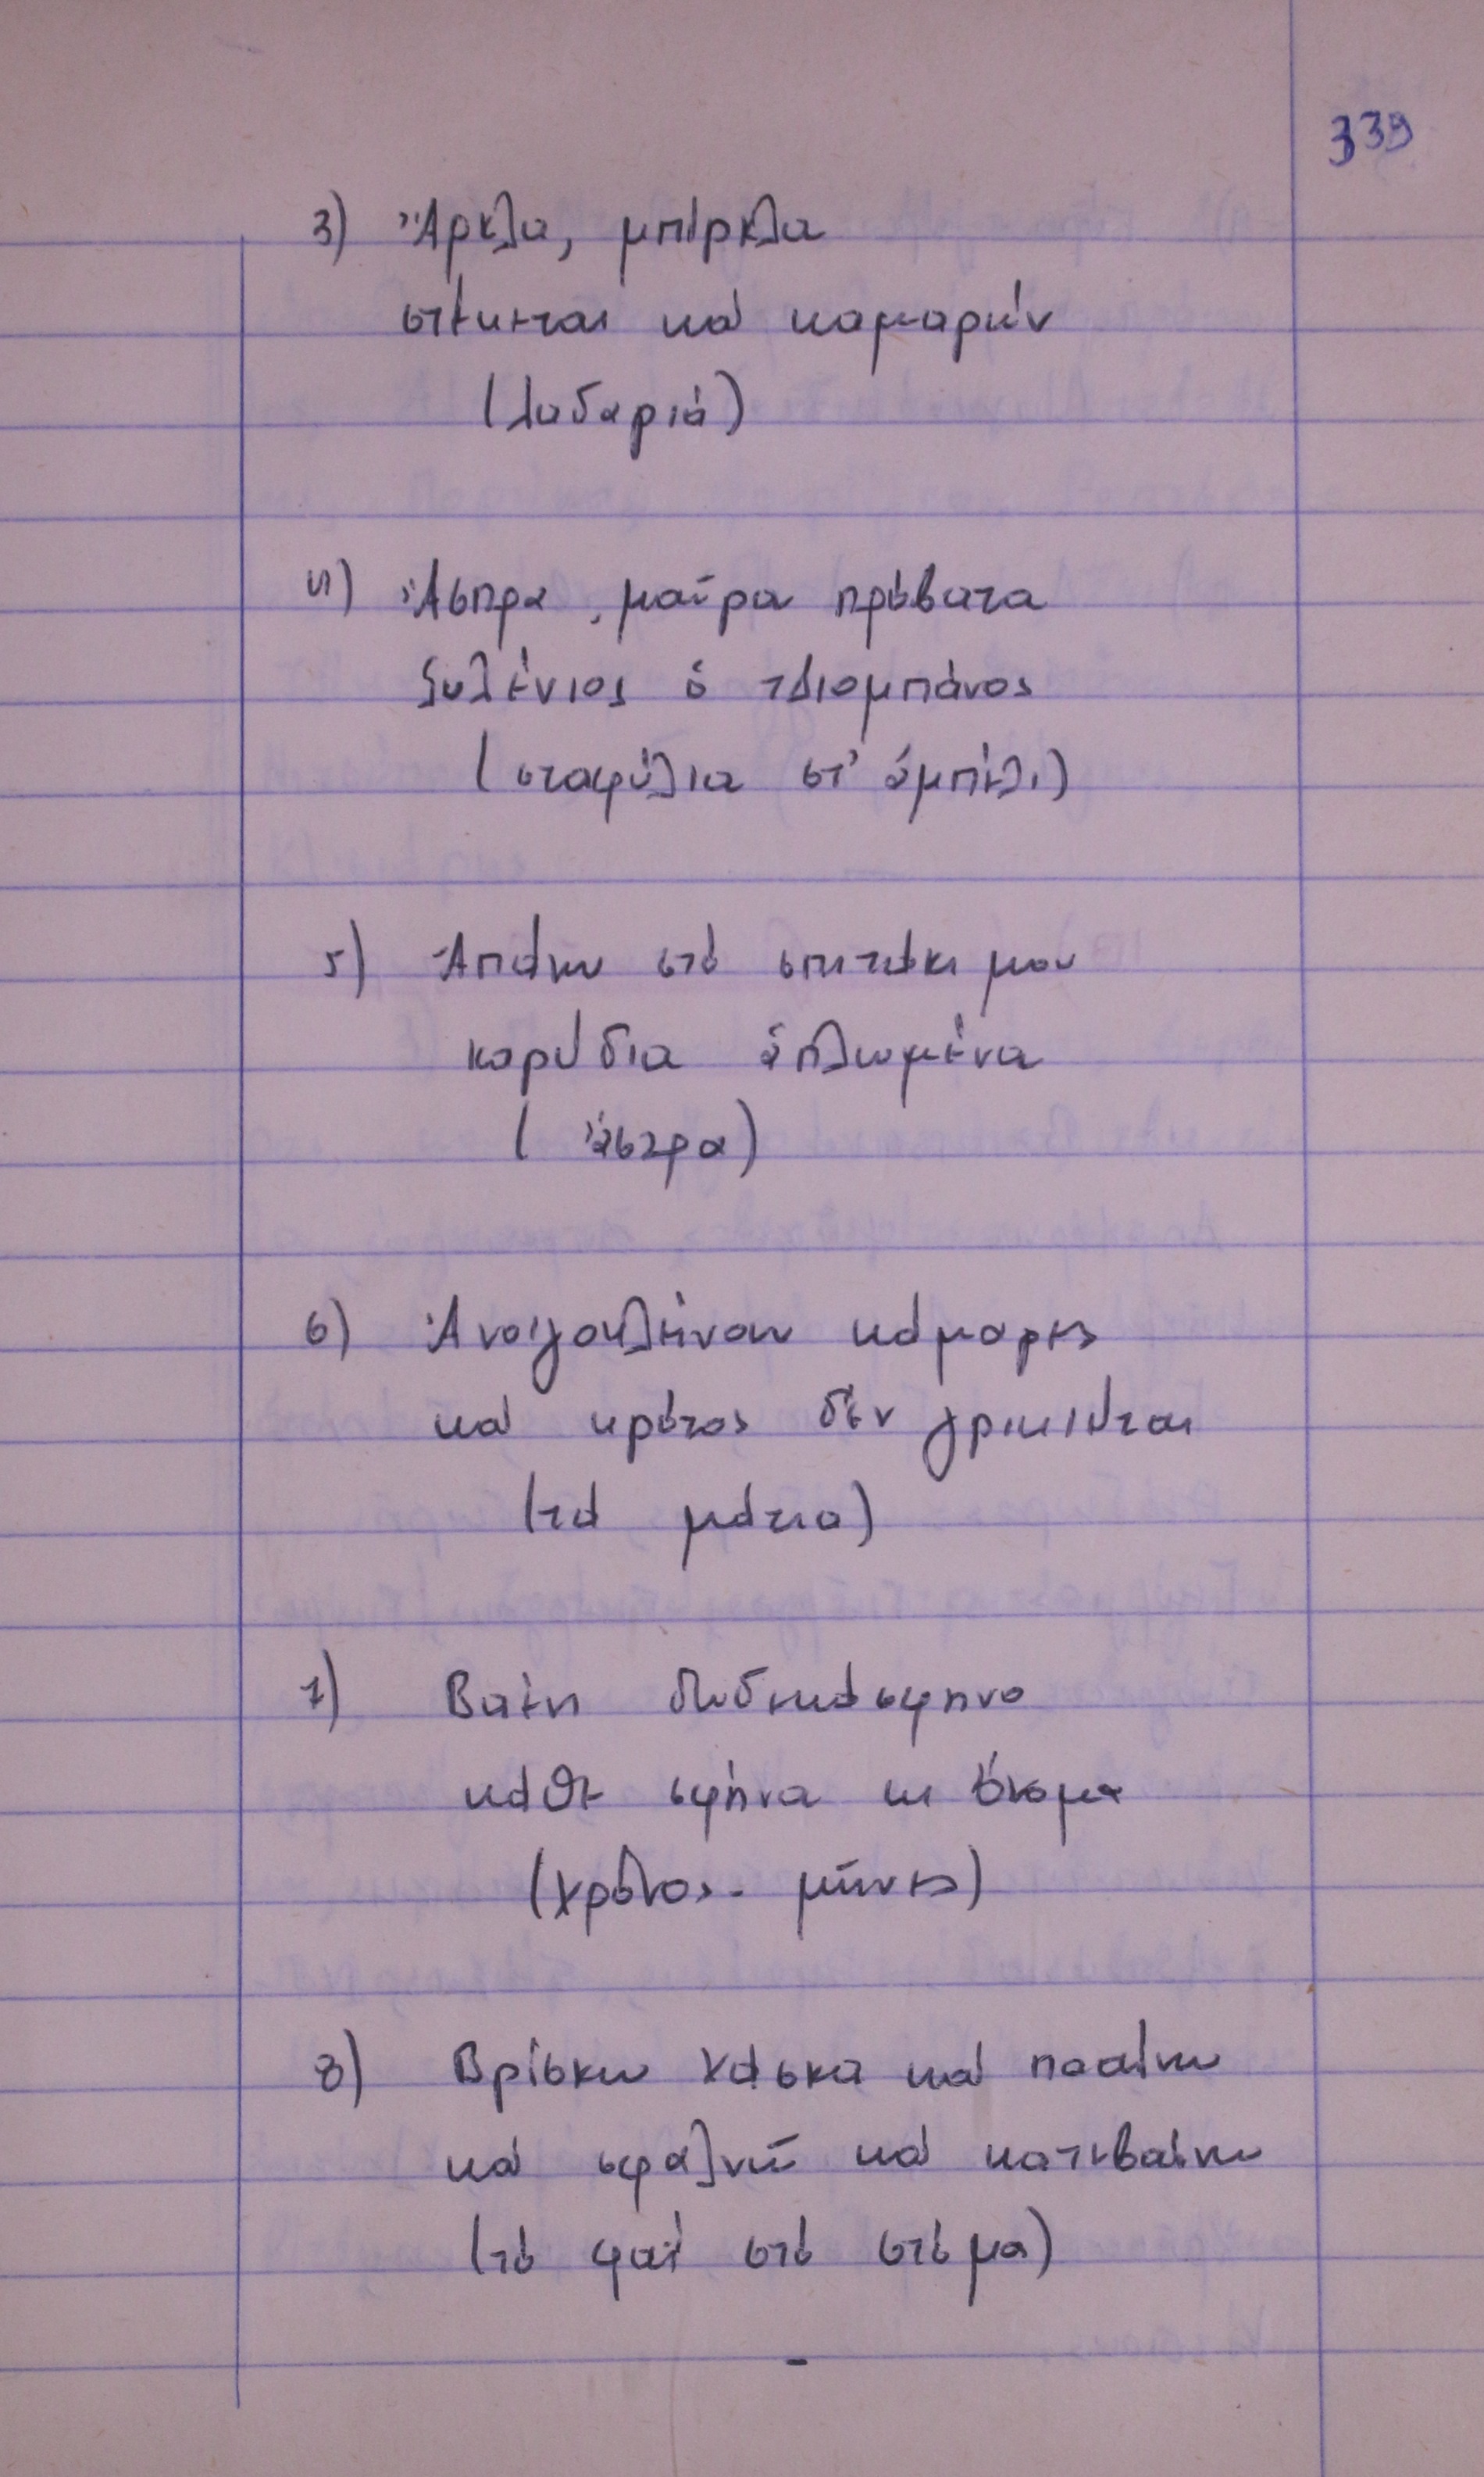 339
3) Ἄρκλα, μπίρκλα
στέκεται καὶ καμαρών
(λυδαριά)
4) Ἄσπρα, μαῦρα πρόβατα
ξυλένιος ὁ τσιομπάνος
(σταφύλια στ' ἀμπέλι)
5) Ἀπάνω στὸ σπιτάκι μου
καρύδια ἁπλωμένα
(ἄστρα)
6) Ἀνοιγοκλείνουν κάμαρες
καὶ κρότος δὲν γρικιέται
(τὰ μάτια)
7) Βαένι δωδεκάσφηνο
κάθε σφήνα κι ὄνομα
(χρόνος - μῆνες)
8) Βρίσκω χάσκα καὶ μπαίνω
καὶ σφαλνῶ καὶ κατεβαίνω
(τὸ φαῒ στὸ στόμα)